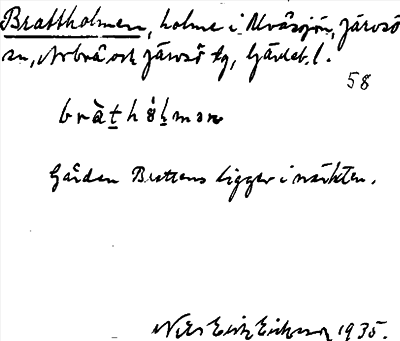 Brattholmen, holme i Kvåsjön, Järvsö
sn, Arbrå och Järvsö tg, Gävleb. l.
58
bràthólmən
Gården Brattens ligger i närheten.
Nils Erik Eriksson 1935.